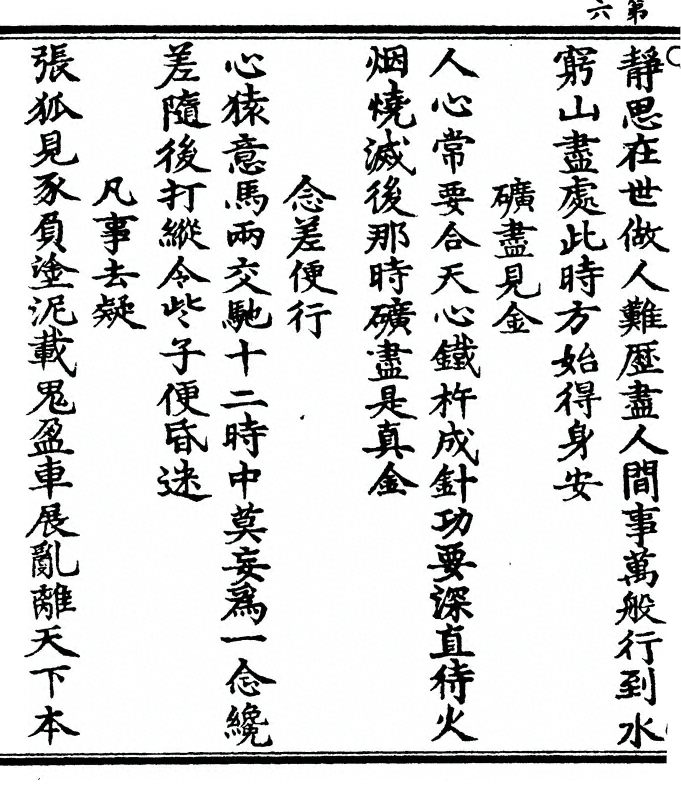 第六
靜思在世做人難歷盡人間事萬般行到水
窮山盡處此時方始得身安
礦盡見金
人心常要合天心鐵杵成針功要深直待火
烟燒滅後那時礦盡是真金
念差便行
心猿意馬兩交馳十二時中莫妄爲一念纔
差隨後打縱令些子便昏迷
凡事去疑
張狐見豕負塗泥載鬼盈車展亂離天下本